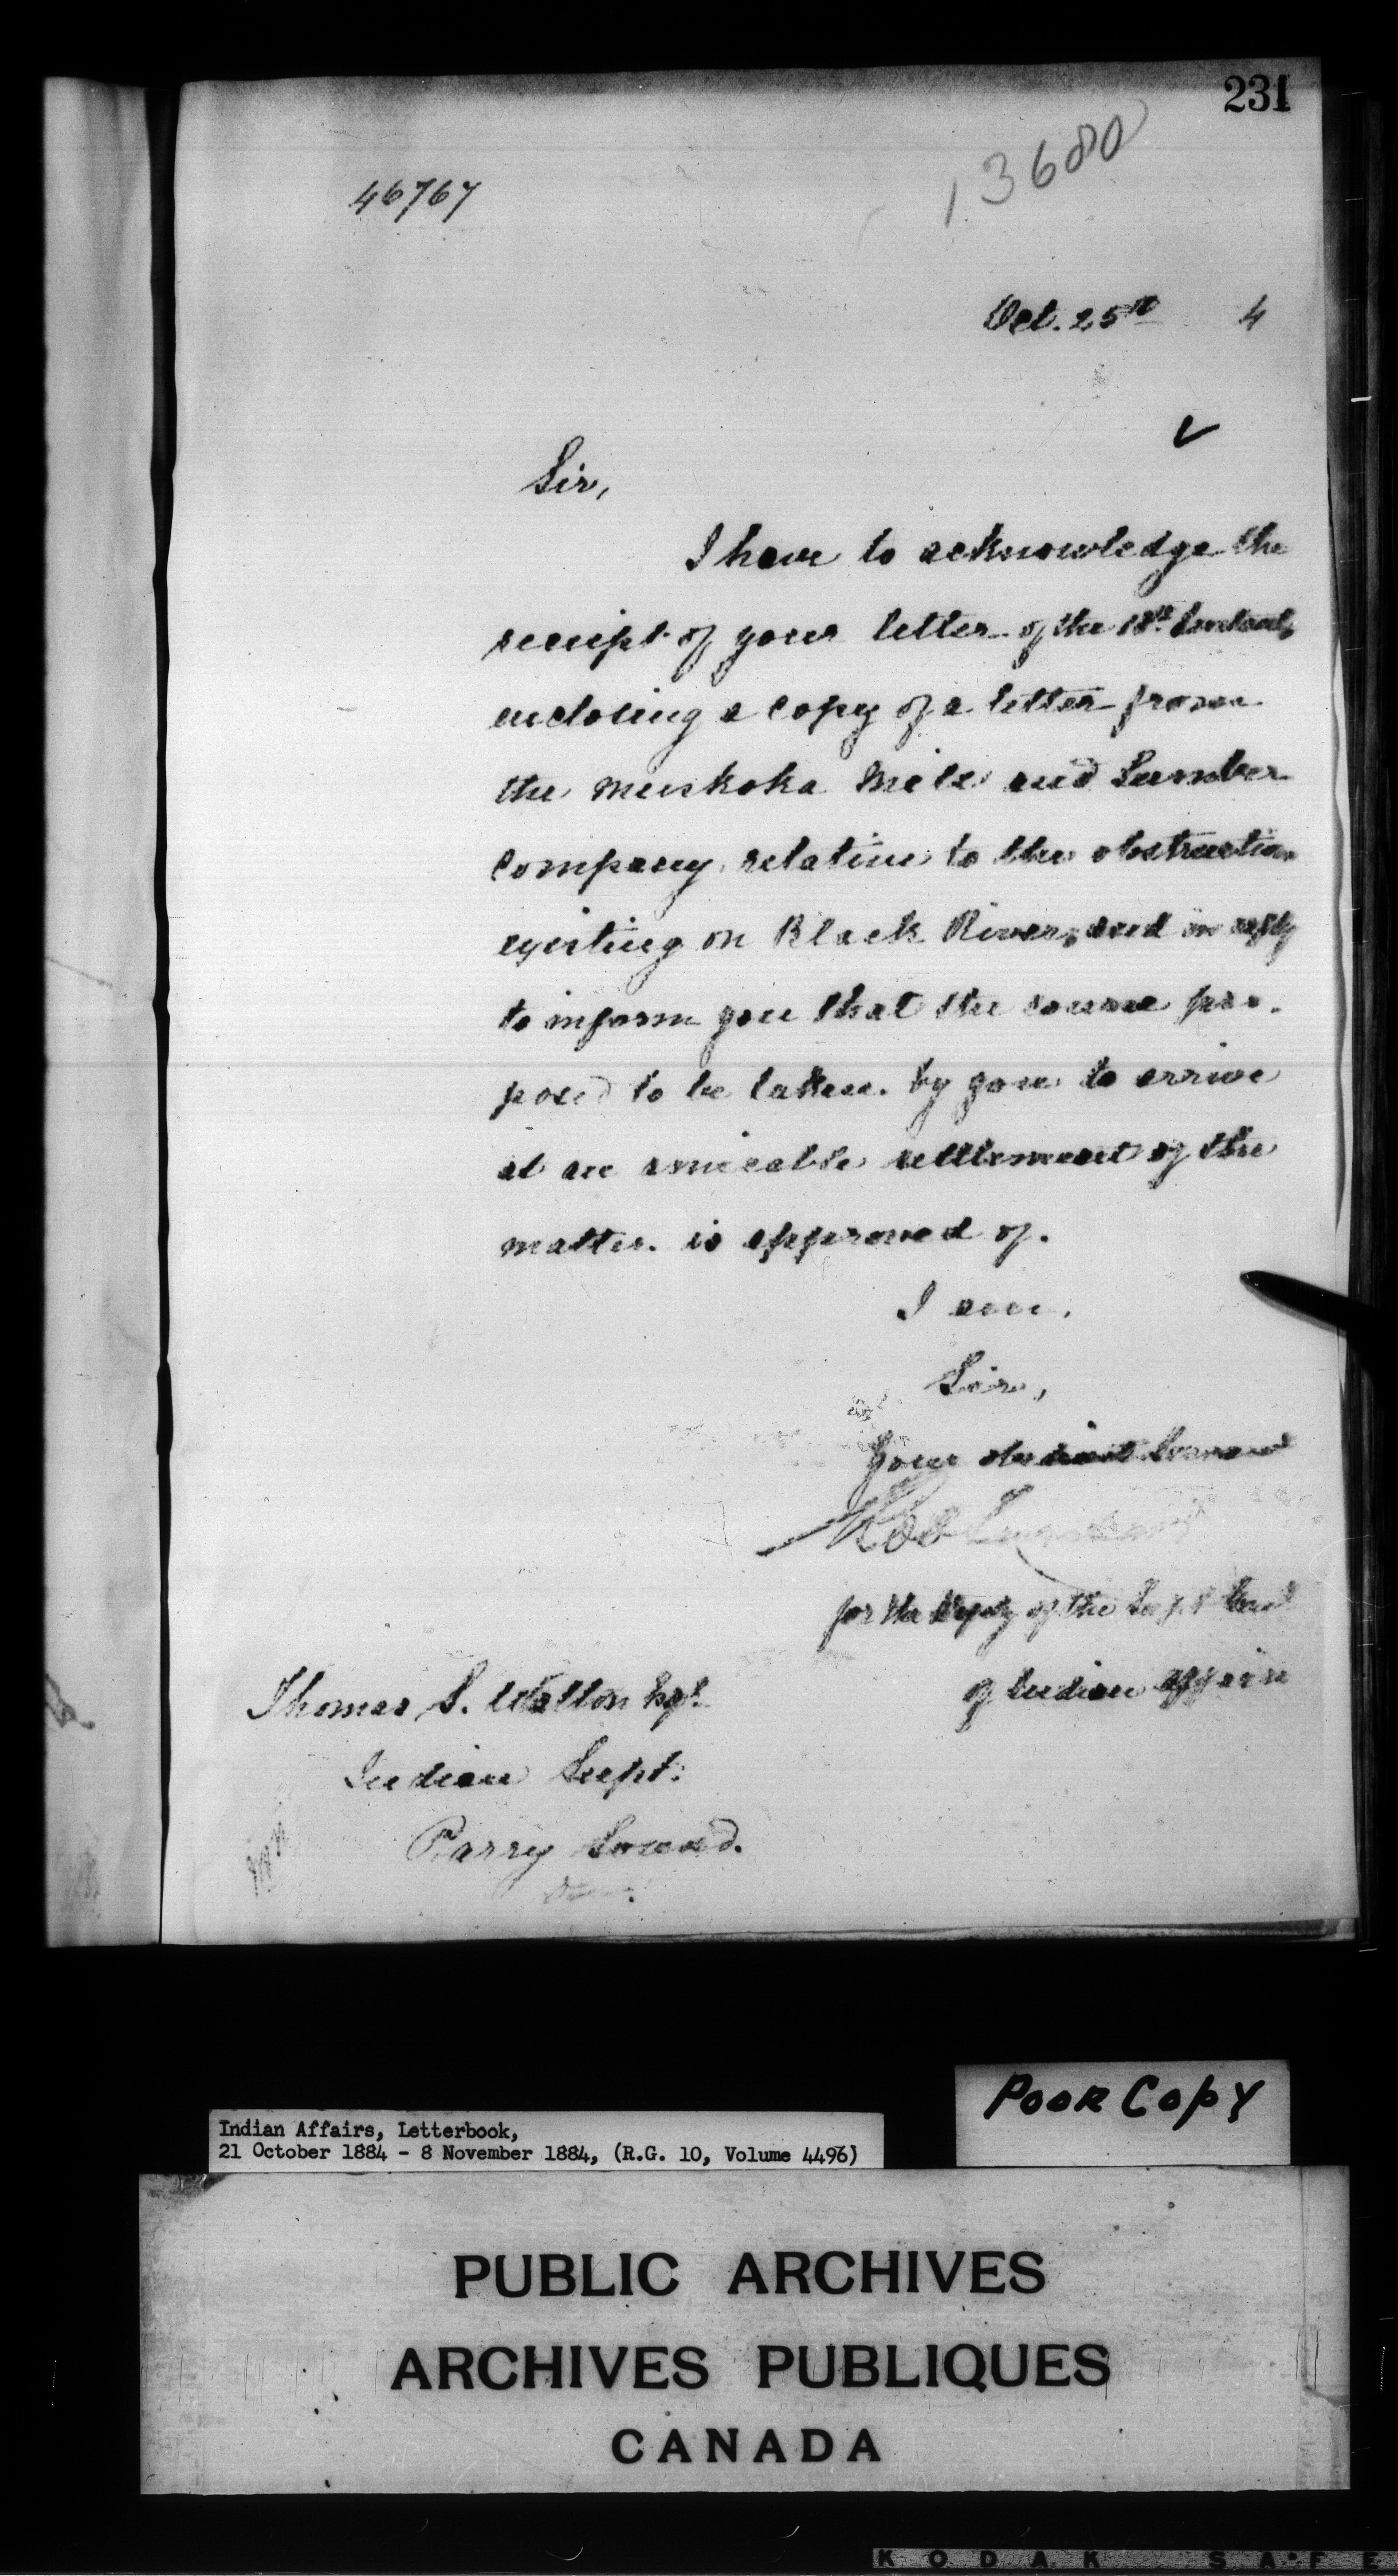 231
13680
46767
Oct. 25th 4
Sir,
I have to acknowledge the
receipt of your letter of the 18th Instant,
enclosing a copy of a letter from
the Muskoka Mill and Lumber
Company, relative to the obstruction
existing on Black River, and in reply
to inform you that the course pro-
posed to be taken by you to arrive
at an amicable settlement of the
matter is approved of.
I am,
Sir,
Your obedient Servant
for the Deputy of the Supt Genl
of Indian Affairs
Thomas S. Walton Esqr.
Indian Supt.
Parry Sound.
Poor Copy
Indian Affairs, Letterbook,
21 October 1884 - 8 November 1884, (R.G. 10, Volume 4496)
PUBLIC ARCHIVES
ARCHIVES PUBLIQUES
CANADA
KODAK SAFE